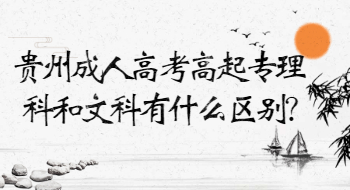 贵州成人高考高起专理
科和文科有什么区别?